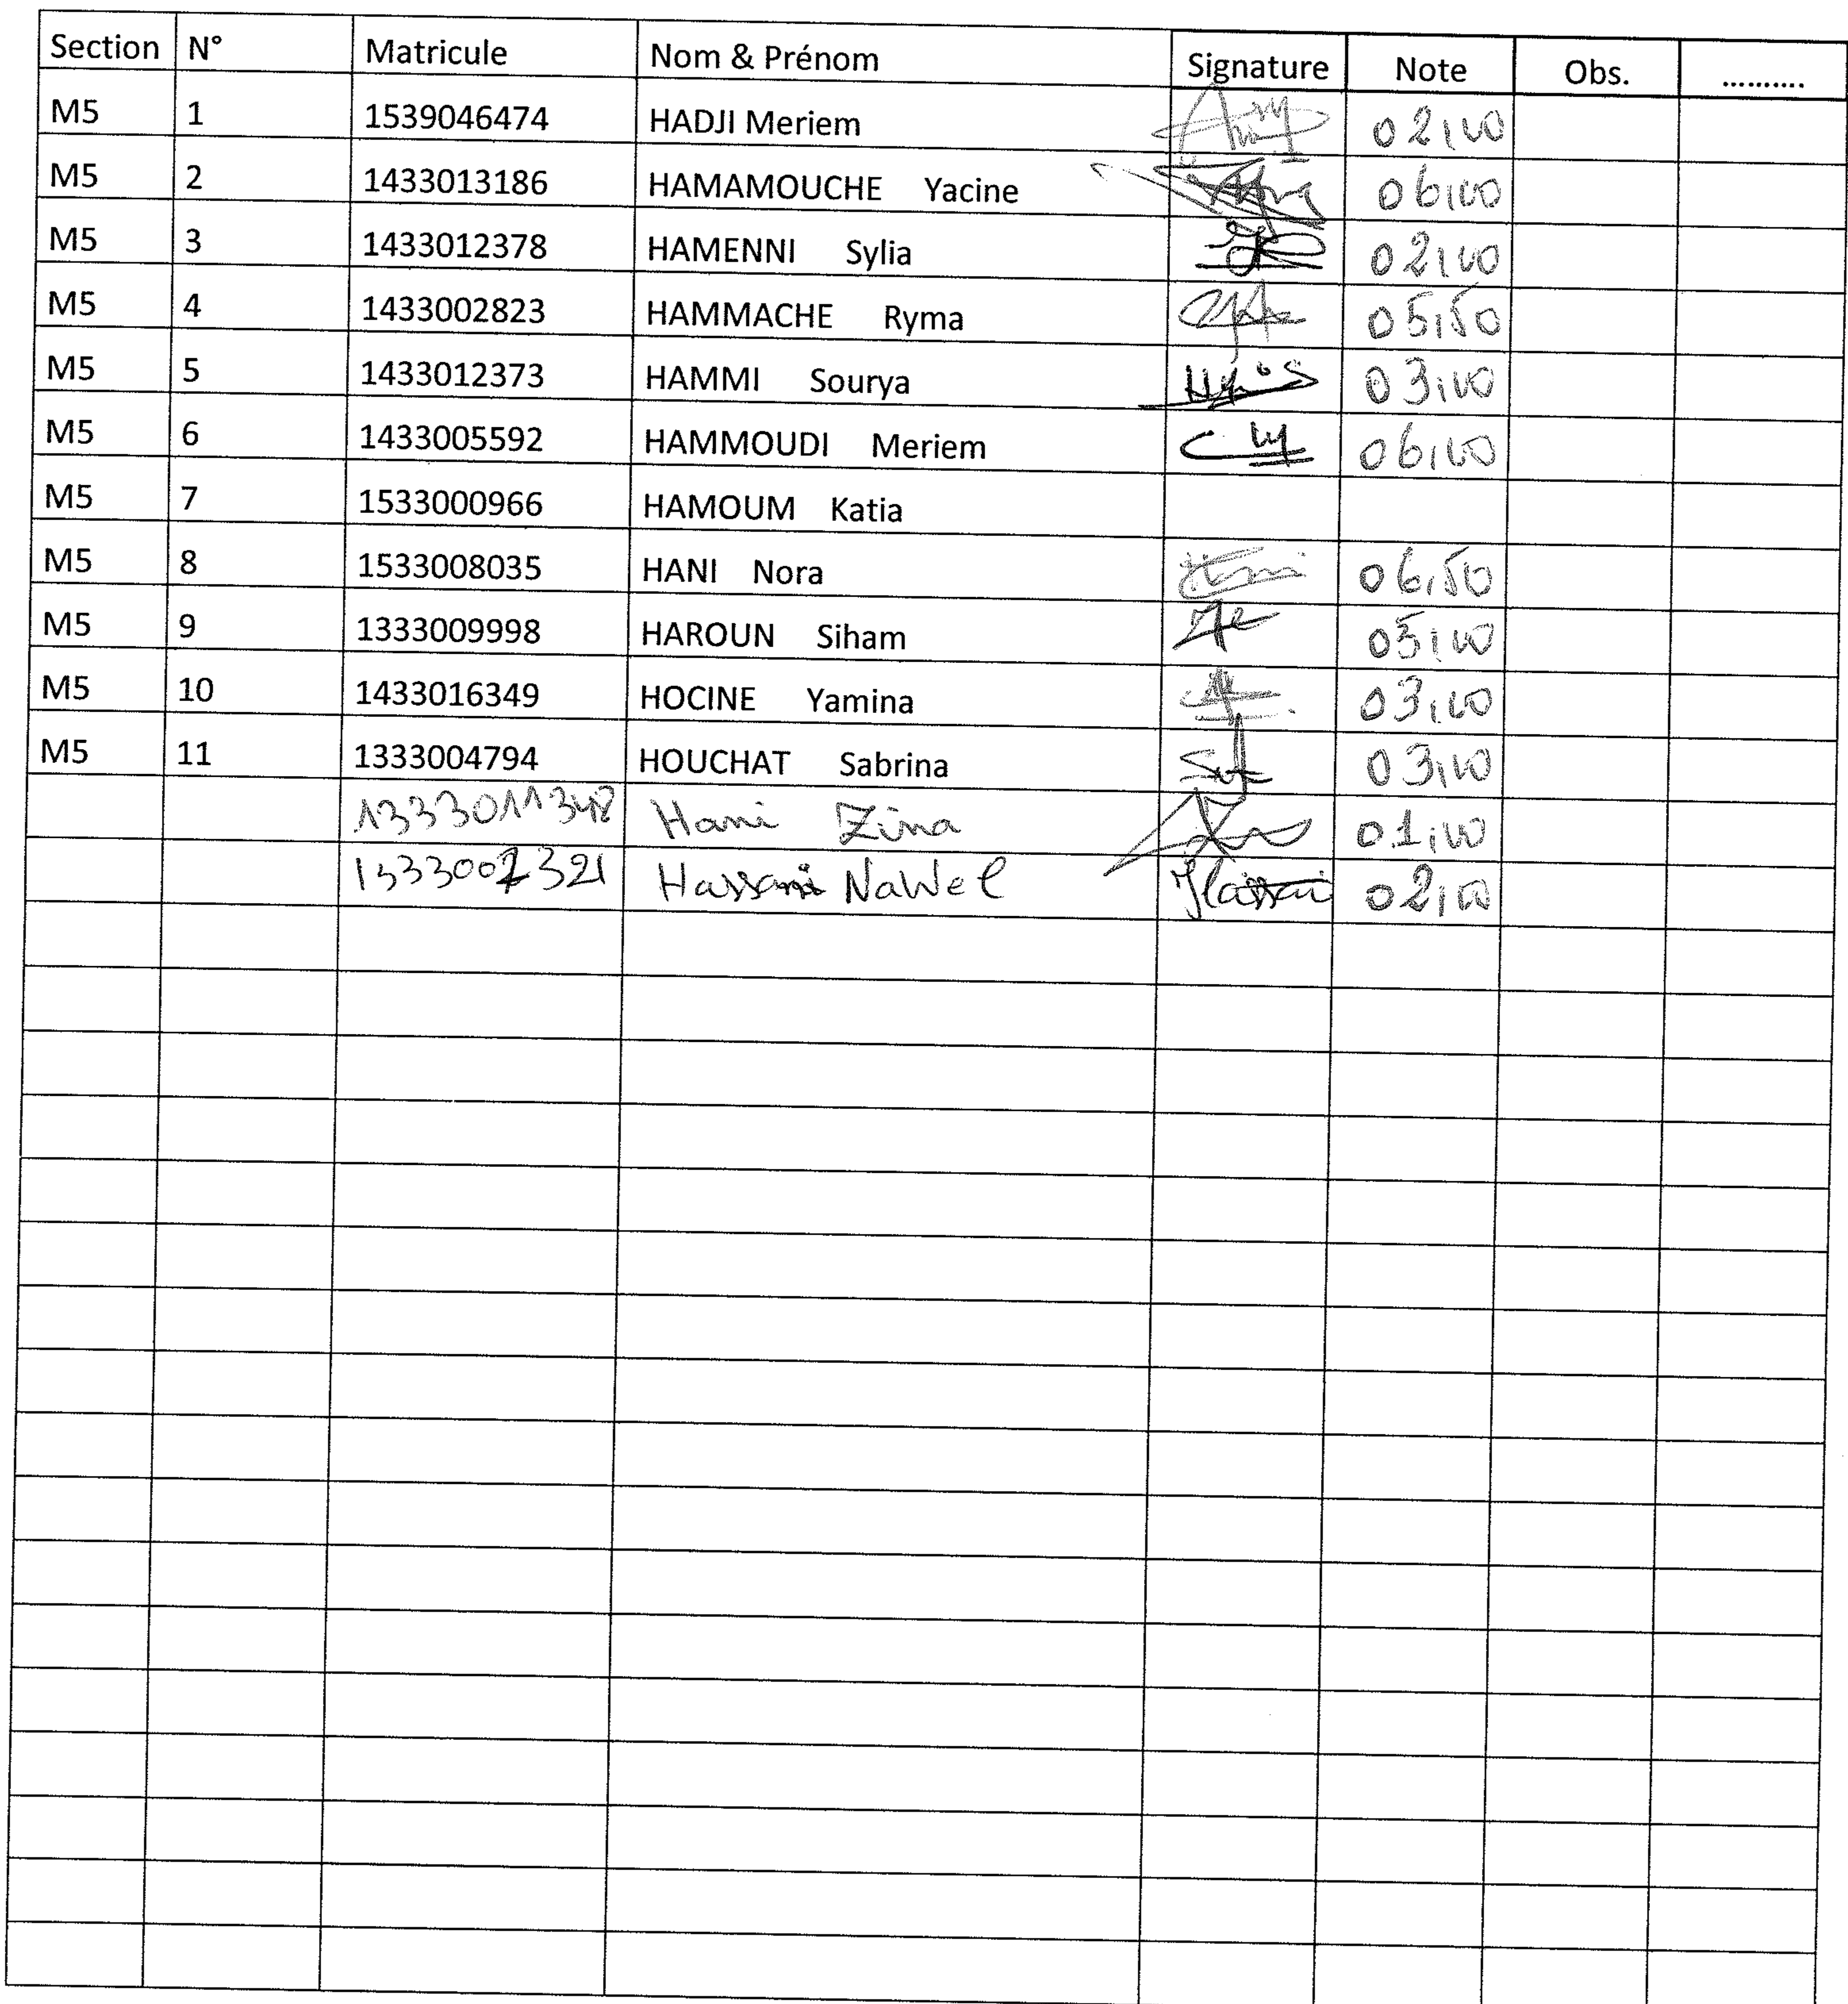 Section N° Matricule Nom & Prénom Signature Note Obs. ..........
M5 1 1539046474 HADJI Meriem 02,00
M5 2 1433013186 HAMAMOUCHE Yacine 06,00
M5 3 1433012378 HAMENNI Sylia 02,00
M5 4 1433002823 HAMMACHE Ryma 05,50
M5 5 1433012373 HAMMI Sourya 03,00
M5 6 1433005592 HAMMOUDI Meriem 06,00
M5 7 1533000966 HAMOUM Katia
M5 8 1533008035 HANI Nora 06,50
M5 9 1333009998 HAROUN Siham 05,00
M5 10 1433016349 HOCINE Yamina 03,00
M5 11 1333004794 HOUCHAT Sabrina 03,00
Hani Zina 01,00
Hassani Nawel 02,00